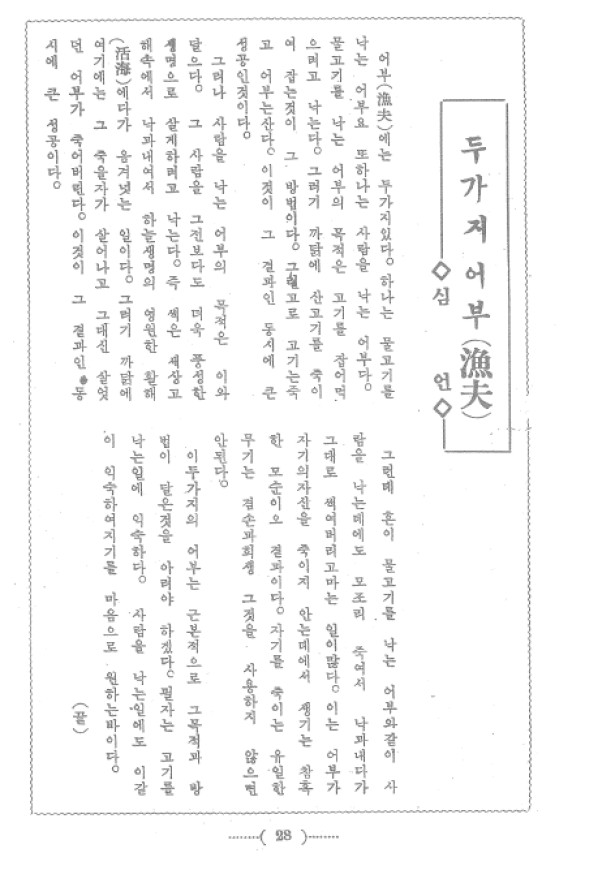 두가지어부(漁夫)
◇심 언◇
어부(漁夫)에는 두가지있다. 하나는 물고기를
낙는 어부요 또하나는 사람을 낙는 어부다.
물고기를 낙는 어부의 목적은 고기를 잡어먹
으려고 낙는다. 그러기 까닭에 산고기를 죽이
여 잡는것이 그 방법이다. 그럼고로 고기는죽
고 어부는산다. 이것이 그 결과인 동시에 큰
성공인것이다.
그러나 사람을 낙는 어부의 목적은 이와
달으다. 그 사람을 그전보다도 더욱 풍성한
생명으로 살게하려고 낙는다. 즉 썩은 세상고
해속에서 낙과내여서 하늘생명의 영원한 활해
(活海)에다가 옴겨넷는 일이다. 그러기 까닭에
여기에는 그 죽을자가 살어나고 그대신 살엇
던 어부가 죽어버린다. 이것이 그 결과인 동
시에 큰 성공이다.
그런데 흔이 물고기를 낙는 어부와같이 사
람을 낙는데에도 모조리 죽여서 낙과내다가
그대로 썩여버리고마는 일이많다. 이는 어부가
자기의자신을 죽이지 안는데에서 생기는 참혹
한 모순이오 결과이다. 자기를 죽이는 유일한
무기는 겸손과희생 그것을 사용하지 않으면
안된다.
이두가지의 어부는 근본적으로 그목적과 방
법이 달은것을 아러야 하겠다. 필자는 고기를
낙는일에 익숙하다. 사람을 낙는일에도 이같
이 익숙하여지기를 마음으로 원하는바이다.
(끝)
( 28 )